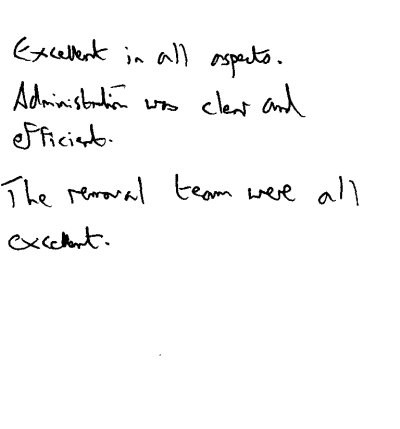 Excellent in all aspects.
Administration was clear and
efficient.
The removal team were all
excellent.